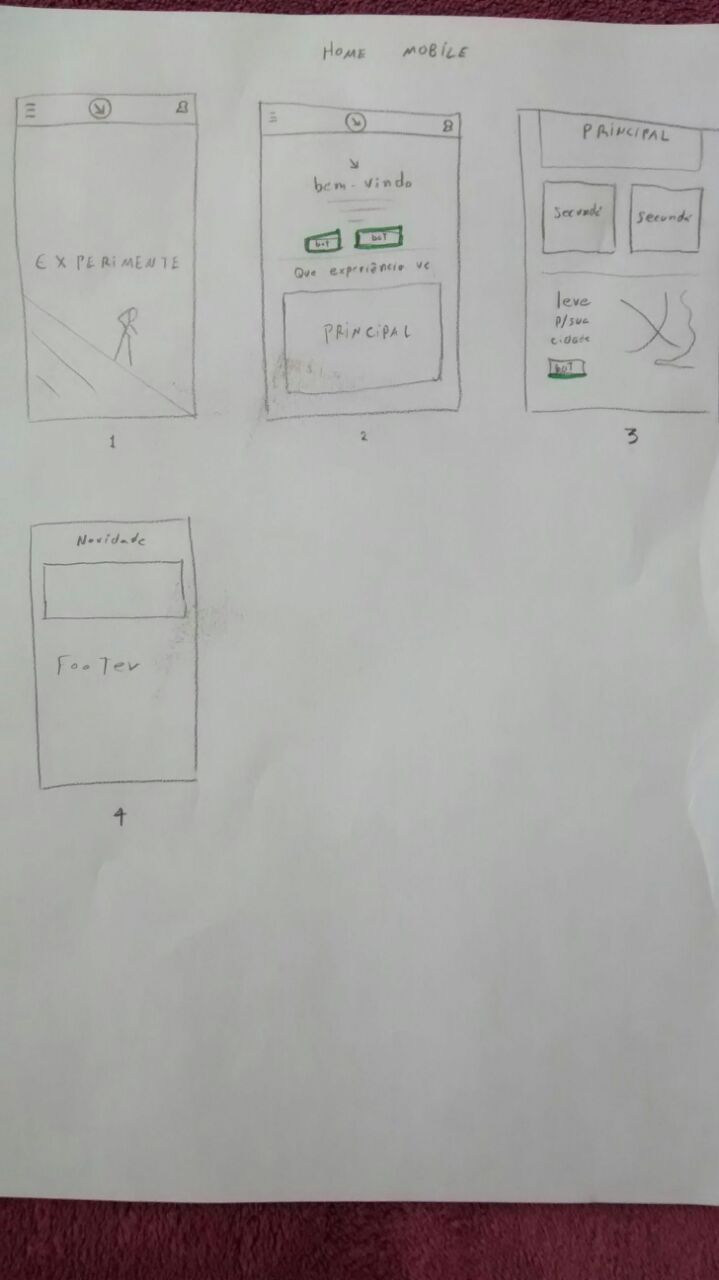 HOME MOBILE
EXPERIMENTE
1
bem-vindo
bot
bot
Que experiência vc
PRINCIPAL
2
PRINCIPAL
Secundá
Secundá
leve
p/sua
cidade
bot
3
Novidade
Footer
4